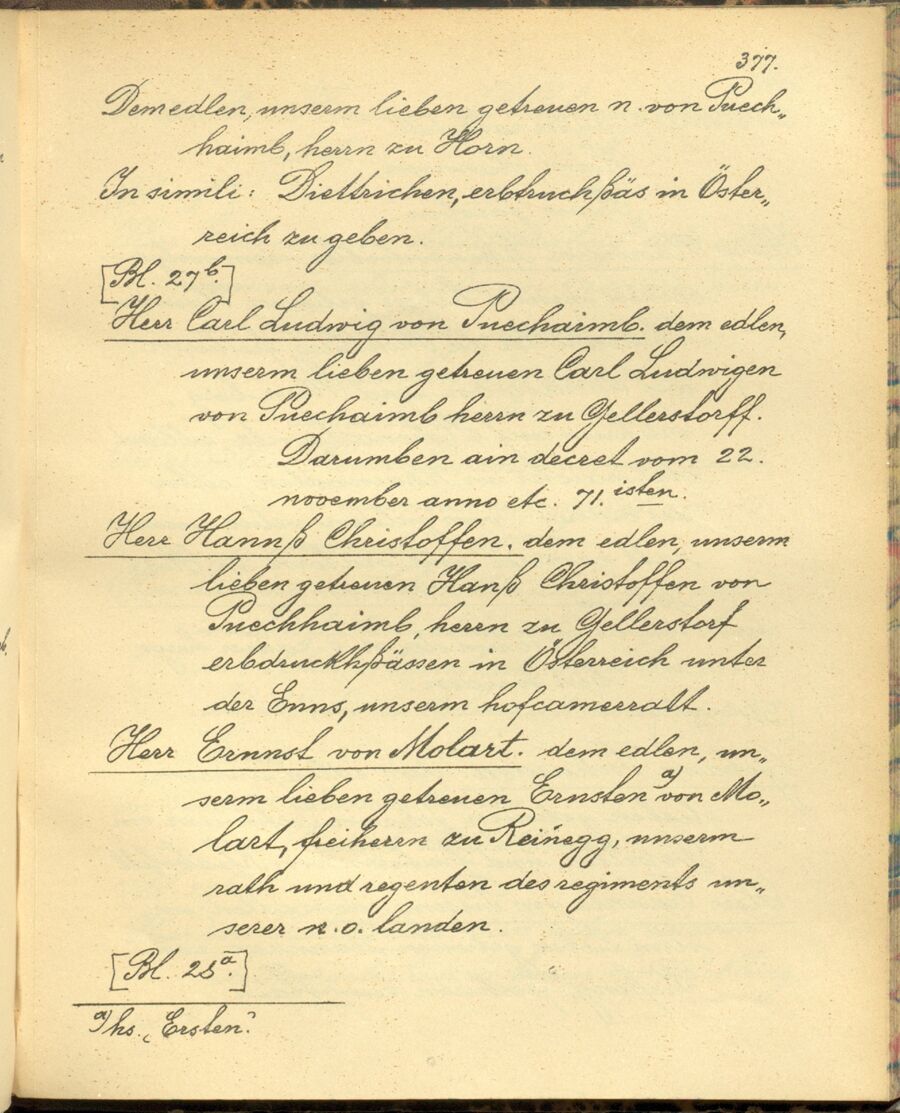 377.
Dem edlen, unserm lieben getreuen n. von Puech„
haimb, herrn zu Horn.
In simili: Diettrichen, erbtruchßäs in Öster„
reich zu geben.
[Bl. 27b.]
Herr Carl Ludwig von Puechaimb. dem edlen,
unserm lieben getreuen Carl Ludwigen
von Puechaimb herrn zu Gellerstorff.
Darumben ain decret vom 22.
november anno etc. 71.isten.
Herr Hannß Christoffen. dem edlen, unserm
lieben getreuen Hanß Christoffen von
Puechhaimb, herrn zu Gellerstorf
erbdruckhßässen in Österreich unter
der Enns, unserm hofcamerratt.
Herr Ernnst von Molart. dem edlen, un„
serm lieben getreuen Ernsten a) von Mo„
lart, freiherrn zu Reinegg, unserm
rath und regenten des regiments un„
serer n. o. landen.
[Bl. 28a.]
a) hs. „Ersten“.